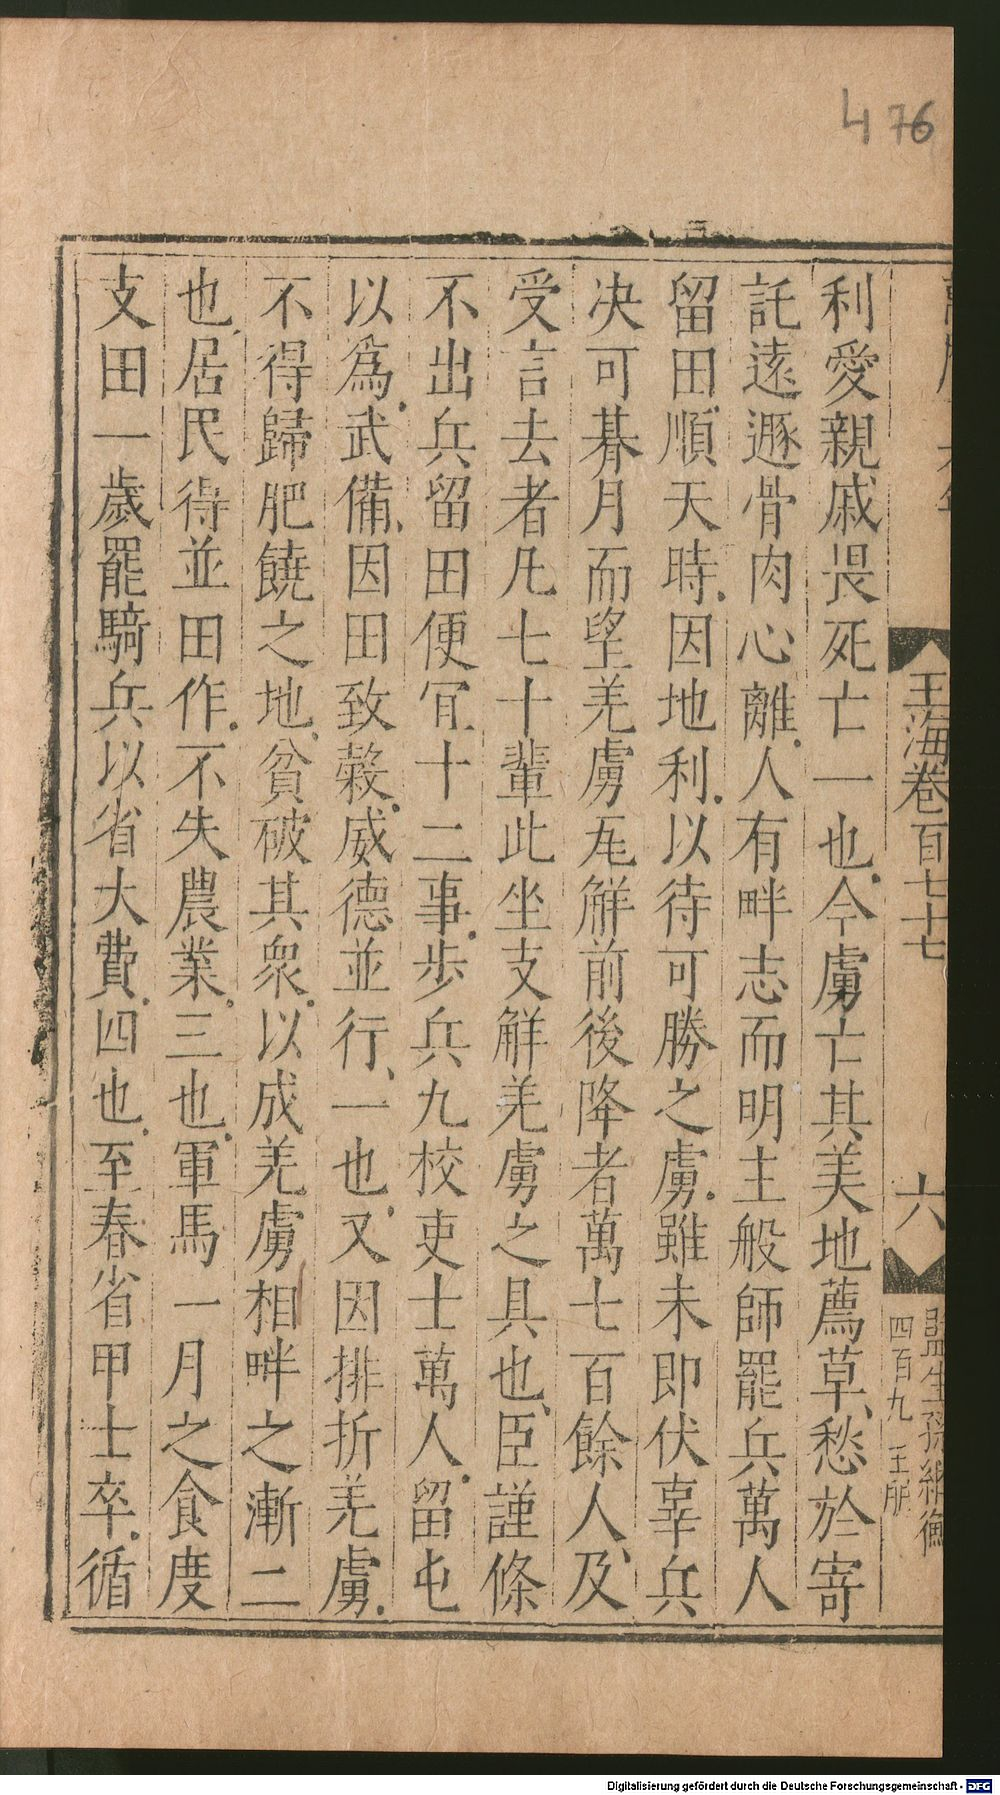 476
玉海卷百七十七
六
四百九 王朋
利愛親戚畏死亡一也今虜亡其美地薦草愁於寄
託遠遯骨肉心離人有畔志而明主般師罷兵萬人
留田順天時因地利以待可勝之虜雖未即伏辜兵
決可朞月而望羌虜瓦解前後降者萬七百餘人及
受言去者凡七十輩此坐支解羌虜之具也臣謹條
不出兵留田便冝十二事步兵九校吏士萬人留屯
以爲武備因田致穀威德並行一也又因排折羌虜
不得歸肥饒之地貧破其衆以成羌虜相畔之漸二
也居民得並田作不失農業三也軍馬一月之食度
支田一歲罷騎兵以省大費四也至春省甲士卒循
Digitalisierung gefördert durch die Deutsche Forschungsgemeinschaft - DFG